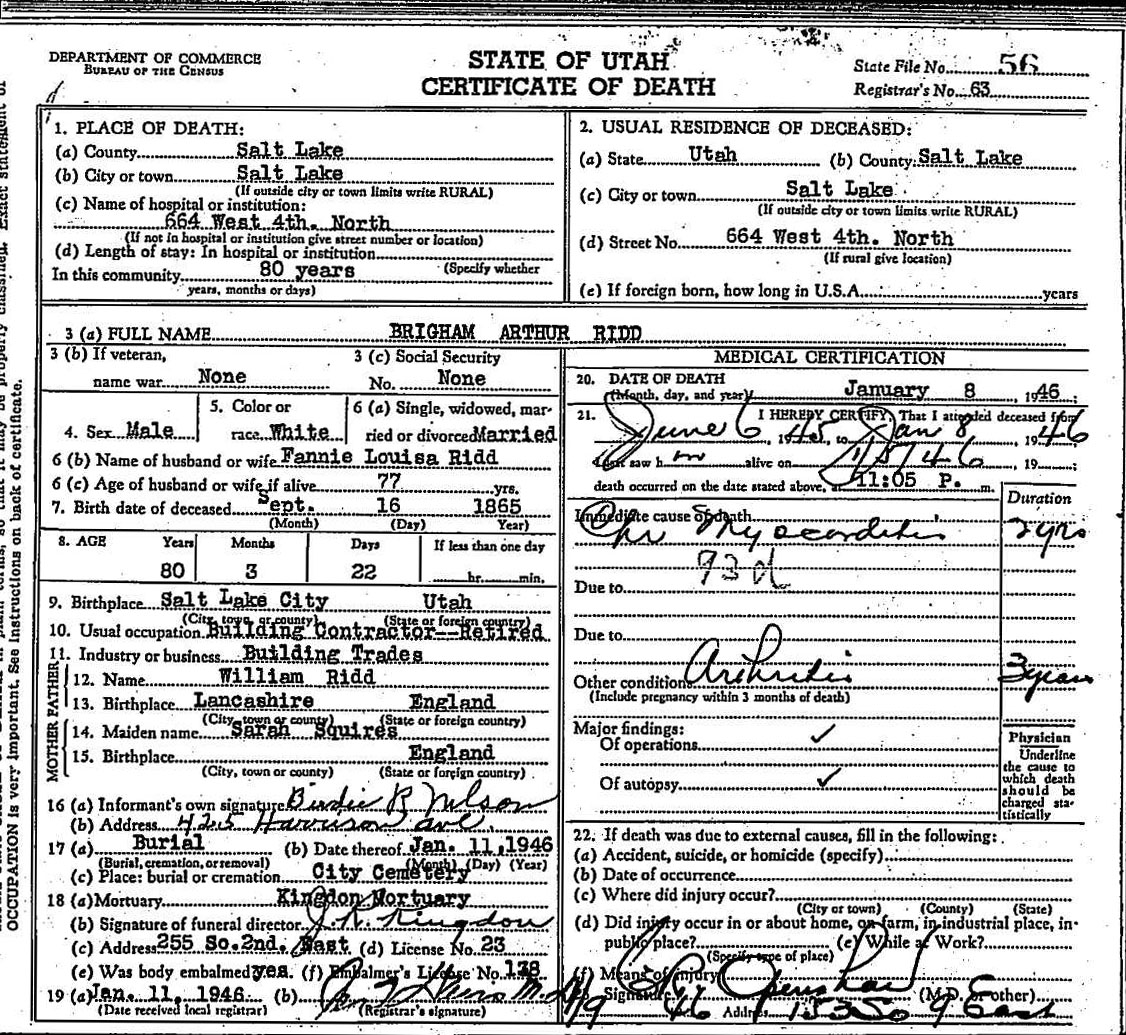 DEPARTMENT OF COMMERCE
BUREAU OF THE CENSUS
STATE OF UTAH
CERTIFICATE OF DEATH
State File No. 56
Registrar's No. 63
1. PLACE OF DEATH:
(a) County Salt Lake
(b) City or town Salt Lake
(If outside city or town limits write RURAL)
(c) Name of hospital or institution:
664 West 4th. North
(If not in hospital or institution give street number or location)
(d) Length of stay: In hospital or institution
In this community 80 years (Specify whether
years, months or days)
2. USUAL RESIDENCE OF DECEASED:
(a) State Utah (b) County Salt Lake
(c) City or town Salt Lake
(If outside city or town limits write RURAL)
(d) Street No. 664 West 4th. North
(If rural give location)
(e) If foreign born, how long in U.S.A. years
3 (a) FULL NAME BRIGHAM ARTHUR RIDD
3 (b) If veteran,
name war None
3 (c) Social Security
No. None
4. Sex Male
5. Color or
race White
6 (a) Single, widowed, mar-
ried or divorced Married
6 (b) Name of husband or wife Fannie Louisa Ridd
6 (c) Age of husband or wife if alive 77 yrs.
7. Birth date of deceased Sept. 16 1865
(Month) (Day) Year)
8. AGE Years Months Days If less than one day
80 3 22 hr. min.
9. Birthplace Salt Lake City Utah
(City, town, or county) (State or foreign country)
10. Usual occupation Building Contractor--Retired
11. Industry or business Building Trades
FATHER
12. Name William Ridd
13. Birthplace Lancashire England
(City, town or county) (State or foreign country)
MOTHER
14. Maiden name Sarah Squires
15. Birthplace England
(City, town or county) (State or foreign country)
16 (a) Informant's own signature Birdie R Nelson
(b) Address 425 Harrison ave.
17 (a) Burial (b) Date thereof Jan. 11, 1946
(Burial, cremation, or removal) (Month) (Day) (Year)
(c) Place: burial or cremation City Cemetery
18 (a) Mortuary Kingdon Mortuary
(b) Signature of funeral director Kingdon
(c) Address 255 So. 2nd. East (d) License No. 23
(e) Was body embalmed yes. (f) Embalmer's License No. 128
19 (a) Jan. 11, 1946 (b)
(Date received local registrar) (Registrar's signature)
MEDICAL CERTIFICATION
20. DATE OF DEATH
(Month, day, and year) January 8, 1946
21. I HEREBY CERTIFY, That I attended deceased from
June 6, 1945, to Jan 8, 1946
I last saw him alive on 1/5/46, 19
death occurred on the date stated above, at 11:05 P. m.
Duration
Immediate cause of death
Chr Myocarditis 2 yrs
93d
Due to
Due to
Other conditions Arthritis 3 years
(Include pregnancy within 3 months of death)
Major findings:
Of operations ✓
Of autopsy ✓
Physician
Underline
the cause to
which death
should be
charged sta-
tistically
22. If death was due to external causes, fill in the following:
(a) Accident, suicide, or homicide (specify)
(b) Date of occurrence
(c) Where did injury occur?
(City or town) (County) (State)
(d) Did injury occur in or about home, on farm, in industrial place, in
public place? (e) While at Work?
(Specify type of place)
(f) Means of injury
Signature Openshaw (M.D. or other)
1/9 46 Address 1535 So 9 East
OCCUPATION is very important. See instructions on back of certificate.